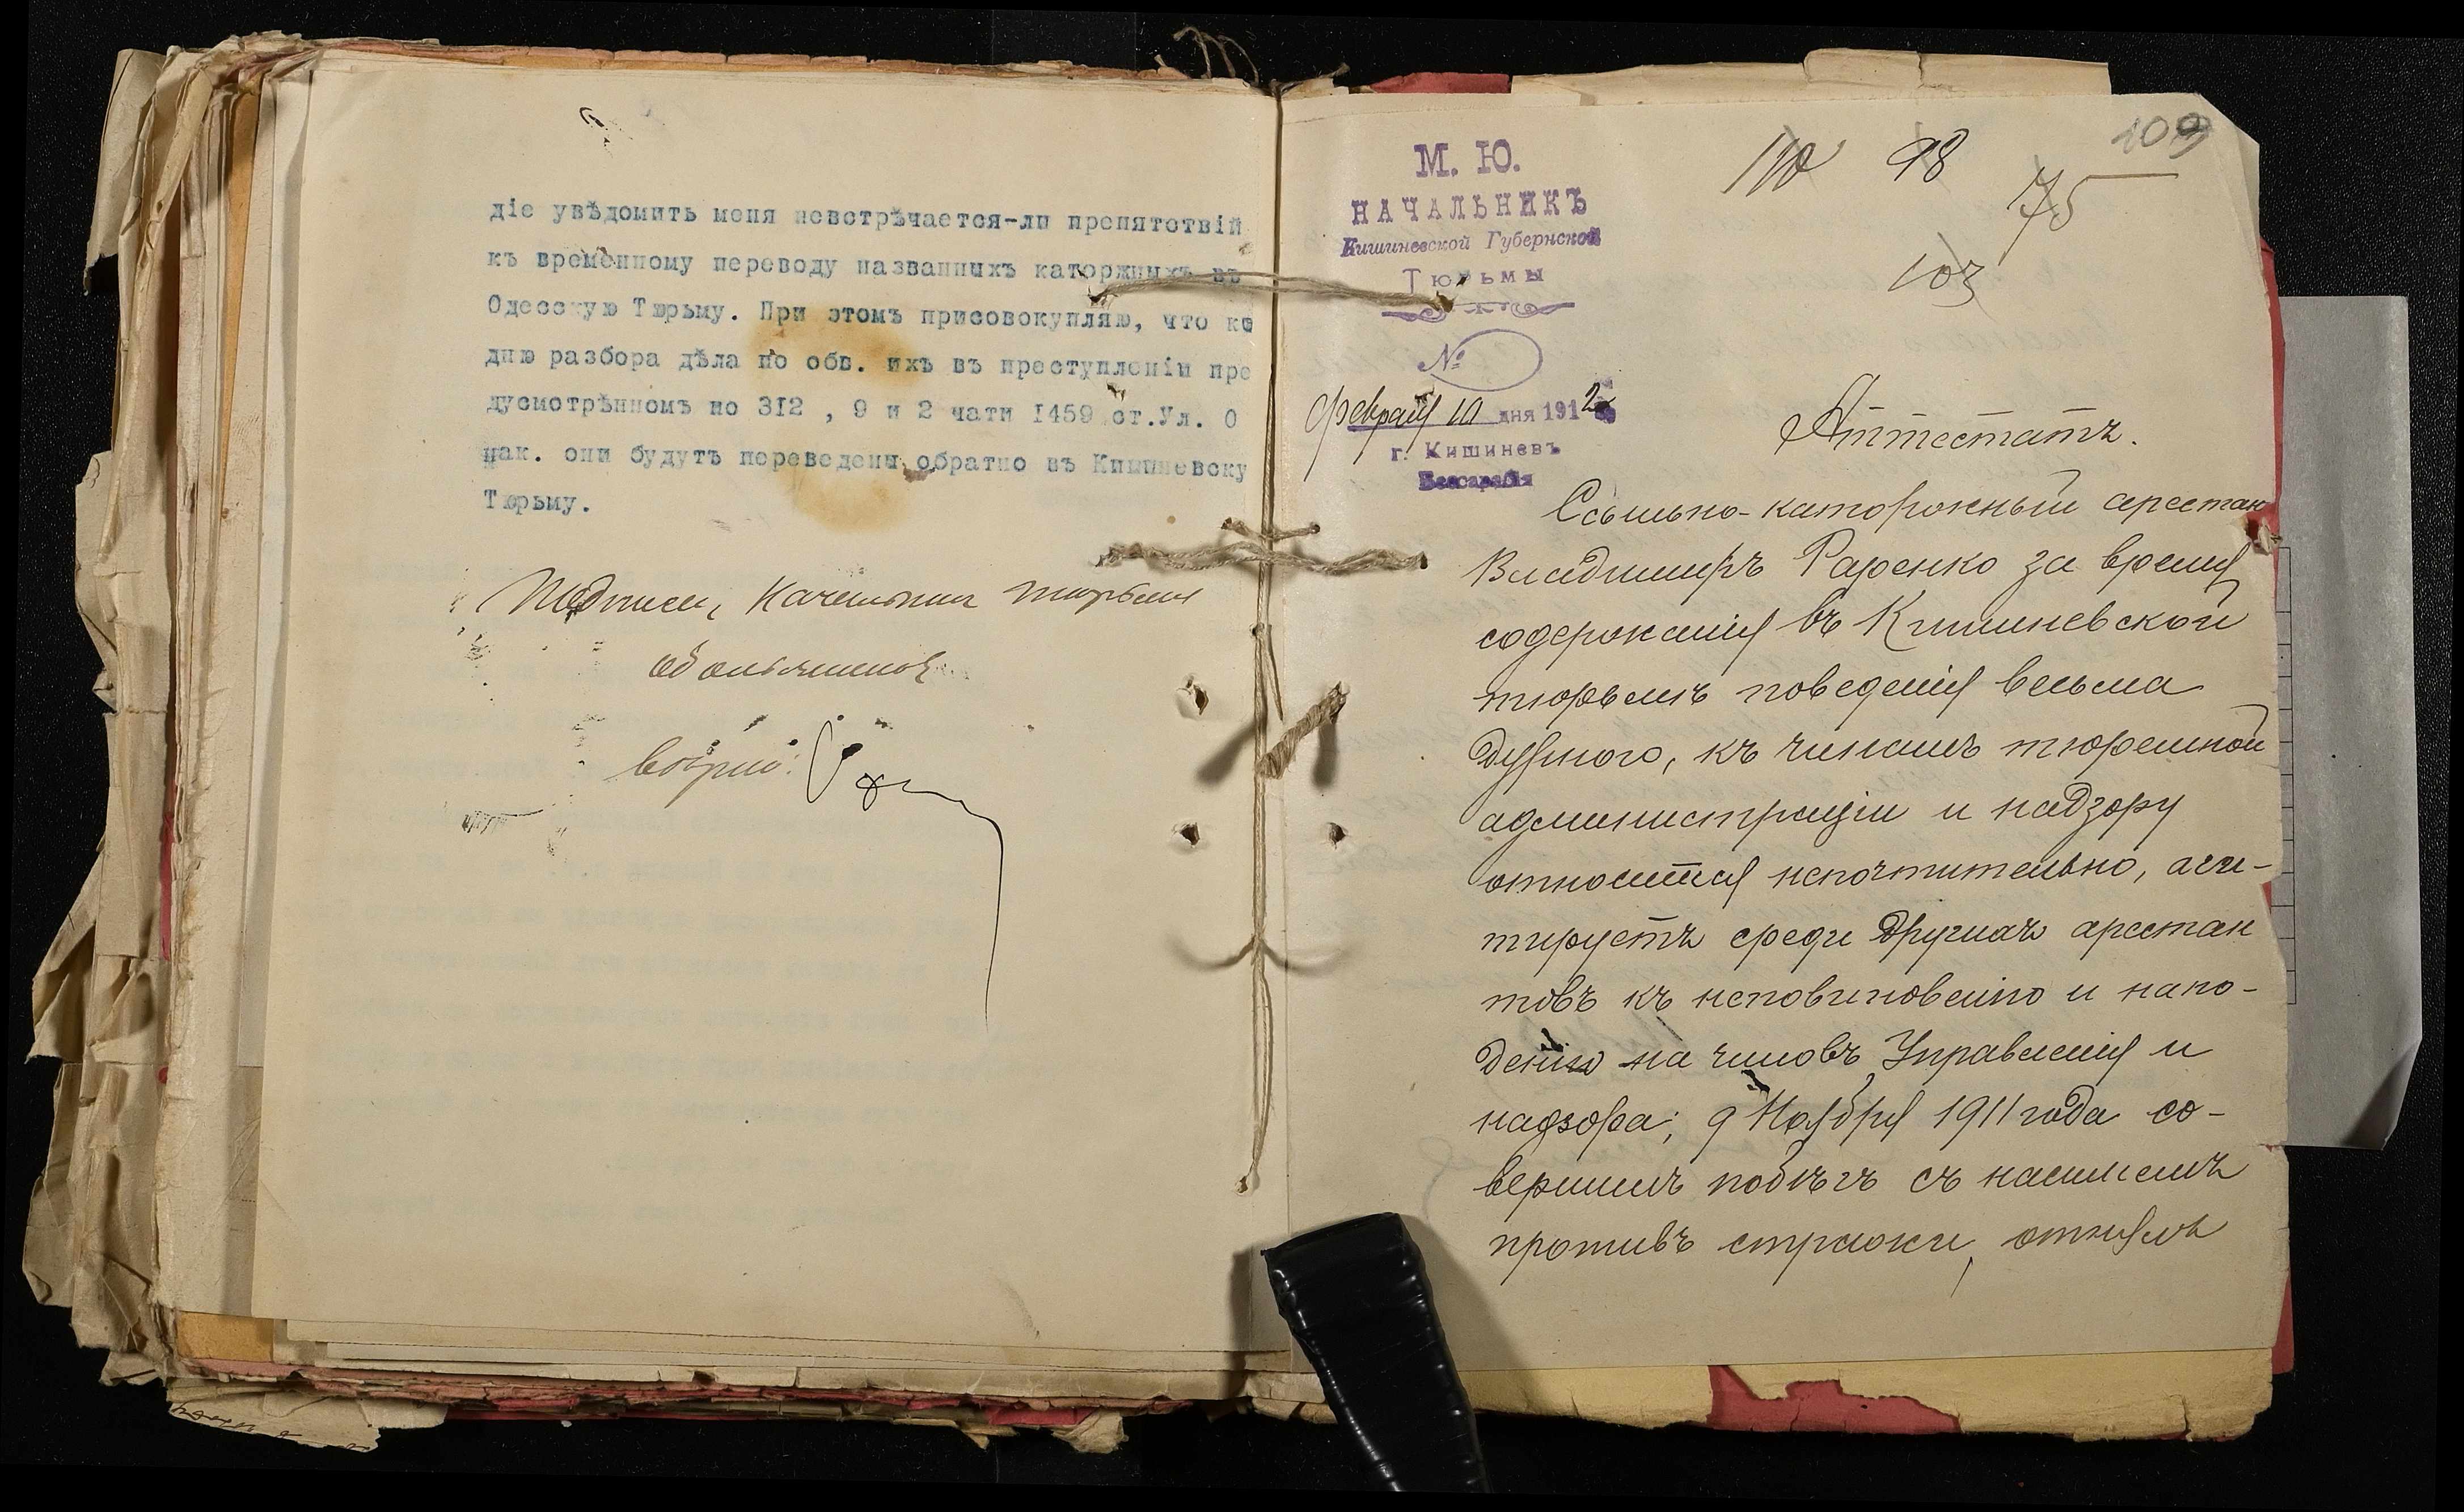 діе увѣдомить меня невстрѣчается-ли препятствій
къ временному переводу названныхъ каторжныхъ въ
Одесскую Тюрьму. При этомъ присовокупляю, что ко
дню разбора дѣла по обв. ихъ въ преступленіи пре
дусмотрѣнномъ по 312 , 9 и 2 чати 1459 ст.Ул. О
нак. они будутъ переведены обратно въ Кишиневску
Тюрьму.
Подписи, Начальник тюрьмы
вѣрно:
109
110 98
75
103
М. Ю.
НАЧАЛЬНИКЪ
Кишиневской Губернской
Тюрьмы
№
Февраля 10 дня 1912
г. Кишиневъ
Бессарабія
Аттестатъ.
Ссыльно-каторжный арестан
Владимиръ Раденко за время
содержанія въ Кишиневской
тюрьмѣ поведенія весьма
дурного, къ чинамъ тюремной
администраціи и надзору
относится непочтительно, аги-
тируетъ среди другихъ арестан
товъ къ неповиновенію и напа-
денію на чиновъ Управленія и
надзора; 9 Ноября 1911 года со-
вершилъ побѣгъ съ насилиемъ
противъ стражи, отнялъ